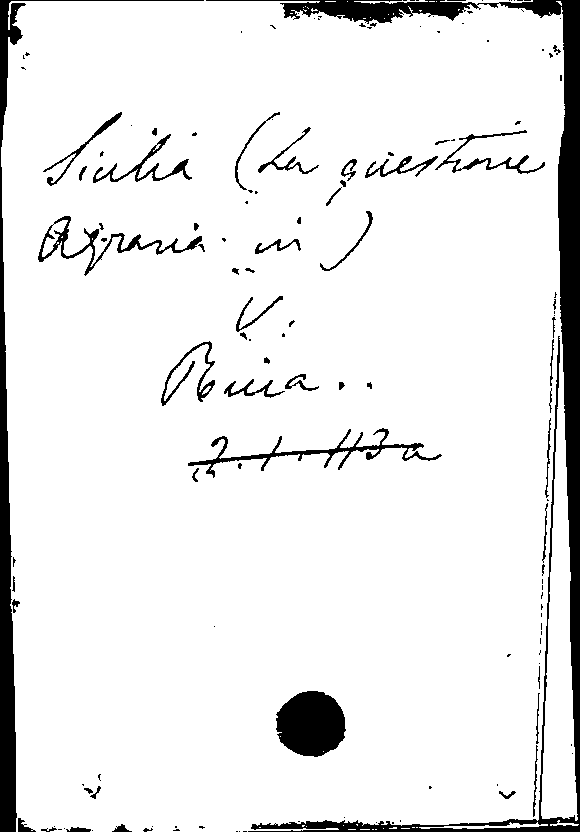 Sicilia (La questione
Agraria in)
V.
Ruia..
2.1.113a